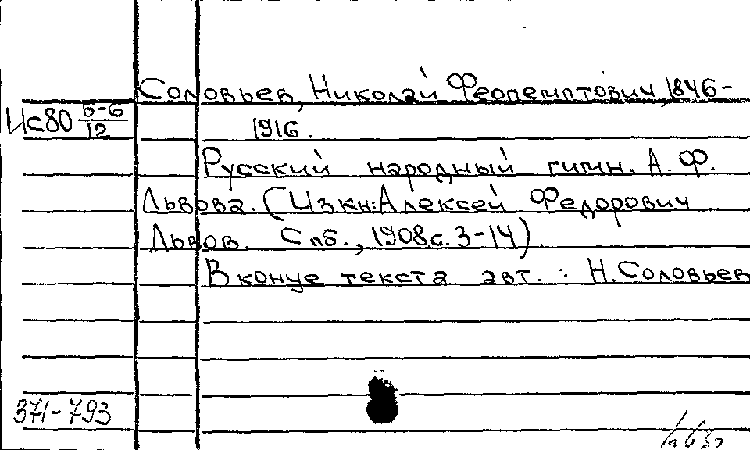 Соловьев, Николай Феопемптович, 1846-
Ис80 Б-6/12
1916.
Русский народный гимн. А. Ф.
Львова. (Из кн: Алексей Федорович
Львов. Спб., 1908 с. 3-14)
В конце текста авт. : Н. Соловьев
371-793